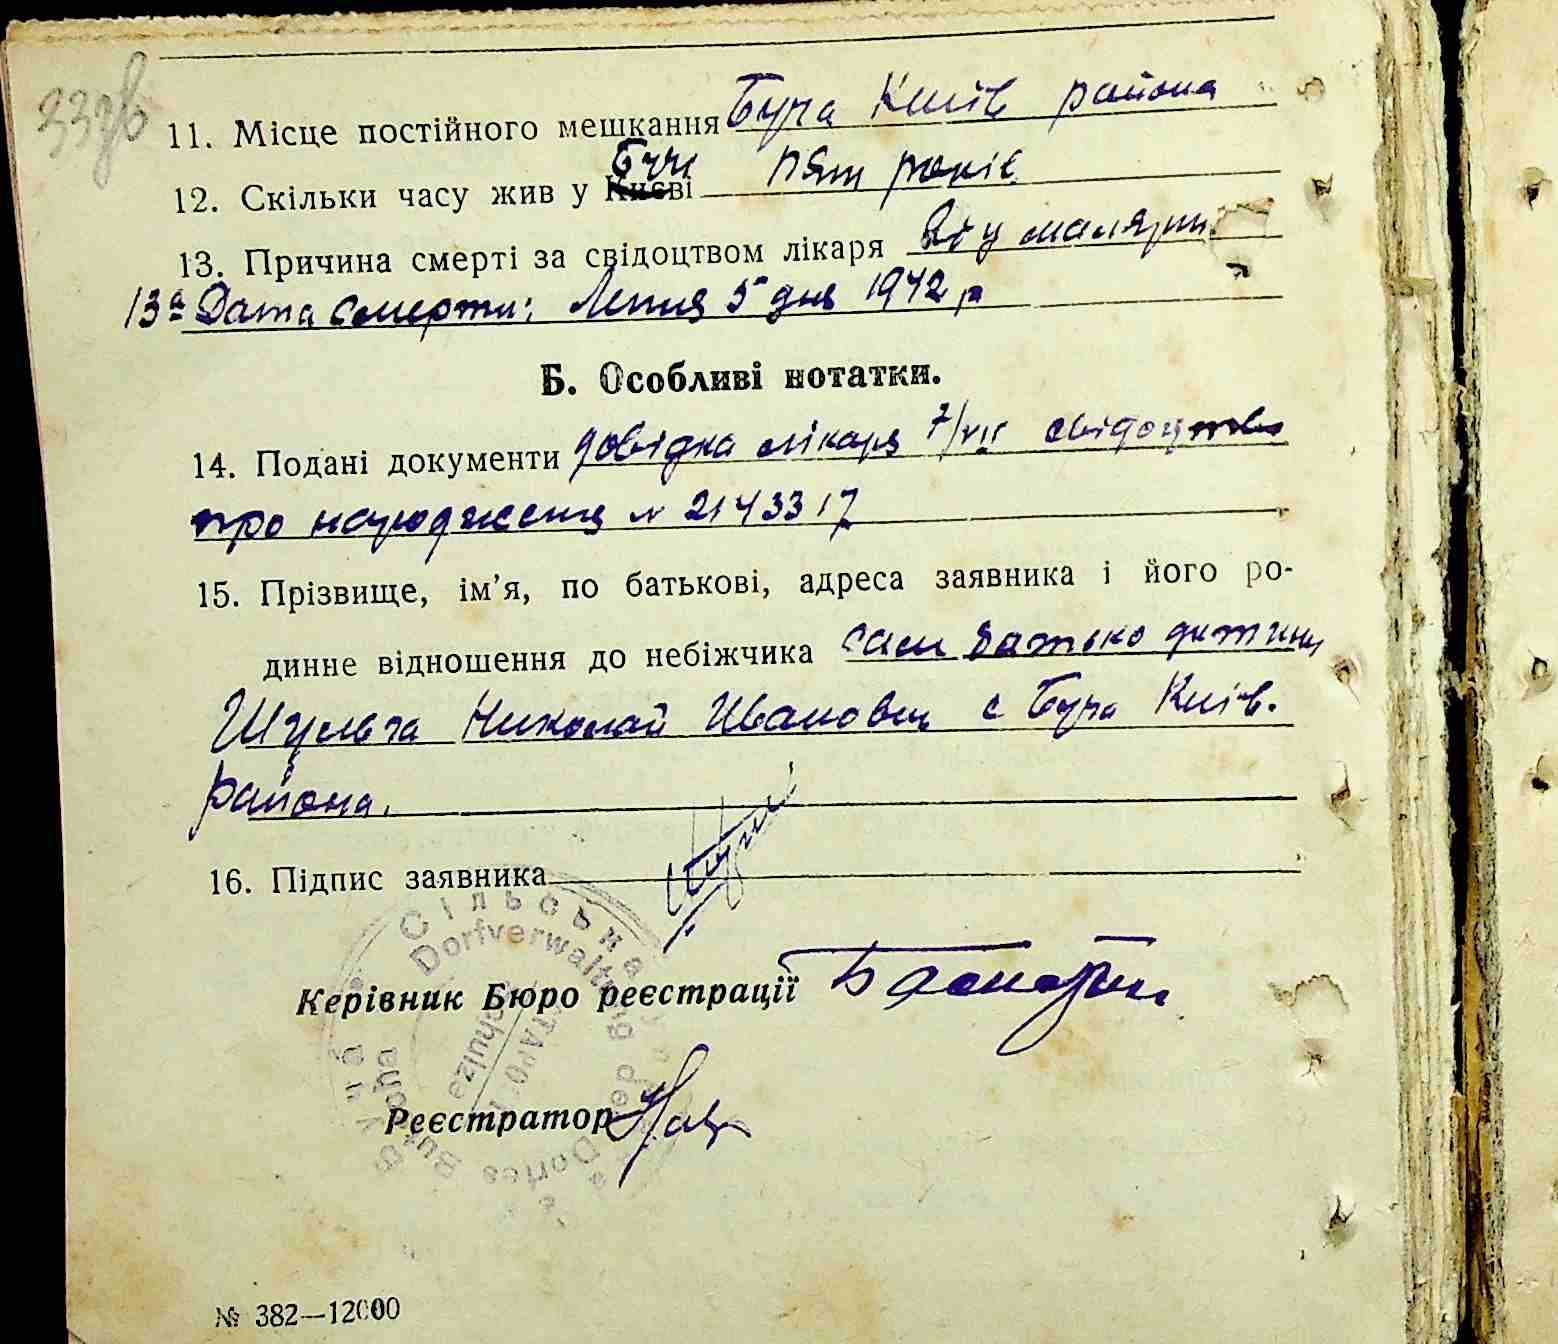 11. Місце постійного мешкання Буча Київ района
12. Скільки часу жив у Києві Бучи пять років
13. Причина смерті за свідоцтвом лікаря від малярии
13а Дата смерти: Липня 5 дня 1942 р
Б. Особливі нотатки.
14. Подані документи довідка лікаря 7/VII свідоцтво
про народження N 2143317
15. Прізвище, ім’я, по батькові, адреса заявника і його ро-
динне відношення до небіжчика сам батько дитини
Шульга Николай Иванович с Буча Київ.
района.
16. Підпис заявника
Сільська
Dorfverwaltung des Dorfes Butscha
Schulze
Керівник Бюро реєстрації
Реєстратор
№ 382—12000